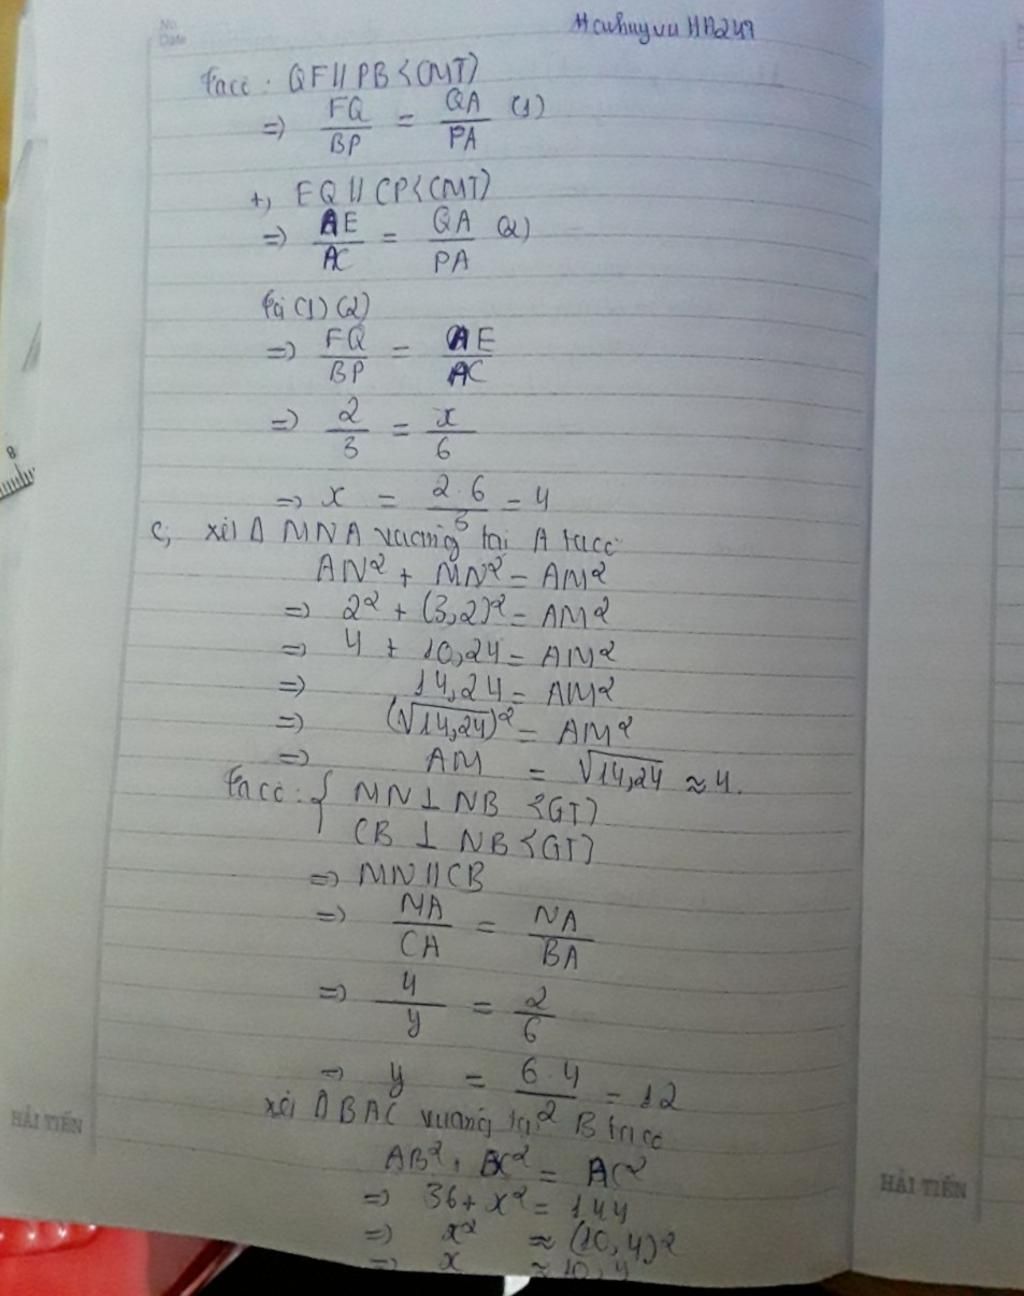 No.
Date
Macuhuyvu HA247
Tacó: QF // PB {CMT}
=> FQ/BP = QA/PA (1)
+, EQ // CP {CMT}
=> AE/AC = QA/PA (2)
Từ (1) (2)
=> FQ/BP = AE/AC
=> 2/3 = x/6
=> x = 2.6/3 = 4
c, xét Δ MNA vuông tại A tacó
AN² + MN² = AM²
=> 2² + (3,2)² = AM²
=> 4 + 10,24 = AM²
=> 14,24 = AM²
=> (√14,24)² = AM²
=> AM = √14,24 ≈ 4.
Tacó: { MN ⊥ NB {GT}
CB ⊥ NB {GT}
=> MN // CB
=> MA/CA = NA/BA
=> 4/y = 2/6
=> y = 6.4/2 = 12
xét Δ BAC vuông tại B tacó
AB² + BC² = AC²
=> 36 + x² = 144
=> x² ≈ (10,4)²
=> x ≈ 10,4
HẢI TIẾN
HẢI TIẾN
8